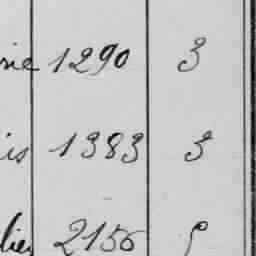 rie 1290 3
is 1383 3
lier 2156